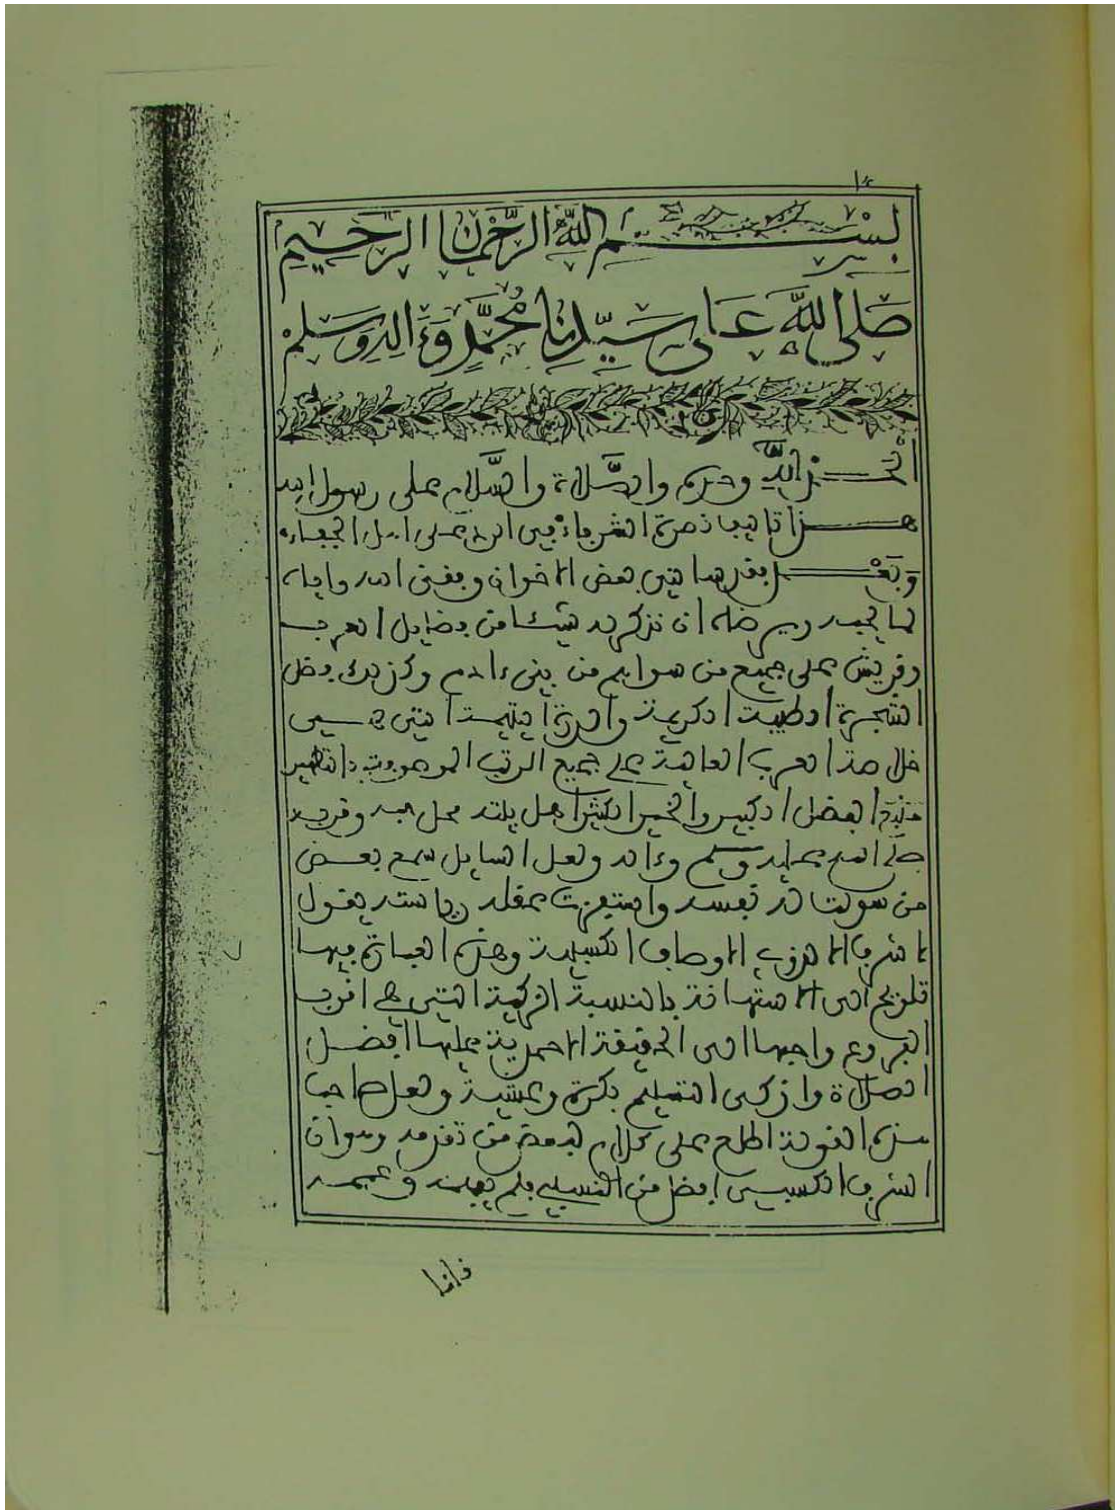 بِسْمِ اللَّهِ الرَّحْمَانِ الرَّحِيمِ
صَلَّى اللَّهُ عَلَى سَيِّدِنَا مُحَمَّدٍ وَءَالِهِ وَسَلِّمْ
الحمد لله وحده والصَّلاة والسَّلام على رسول الله
هذا تاليف نصرة الشرفاء في الرد على اهل الجفاء
وَبَعْد فقد سالني بعض الاخوان وفقني الله واياه
لما يحبه ويرضاه ان نذكر له شيئا من فضايل العرب
وقريش على جميع من سواهم من بني ءادم وكذلك فضل
الشجرة الطيبة الكريمة والدرة اليتيمة التي هي
خلاصة العرب العالية على جميع الرتب الموصوفة بالتطهير
الفضل الكبير والخير الكثير اهل بيته محل
صلى الله عليه وسلم وءاله ولعل السايل سمع بعض
من سولت له نفسه واستفزت عقله يقول
لا شرف الا هذه الاوصاف الكسبية وهذه العبارة فيها
تلويح الى الاستهانة بالنسبة الزكية التي هي اقرب
الفروع واجبها الى الحقيقة الاحمدية عليها افضل
الصلاة وازكى التسليم بكرة وعشية ولعل صاحب
هذه القولة اطلع على كلام لبعض من تقدمه وهو ان
الشرف الكسبي افضل من النسبي فلم يفهمه
فاما